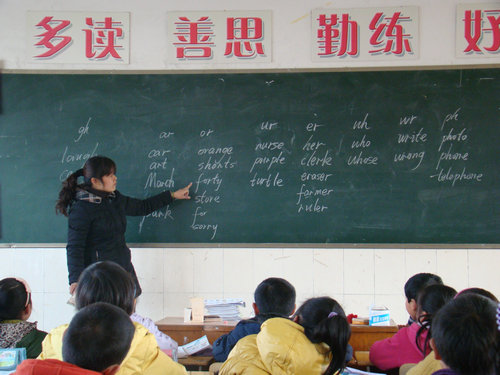 多读 善思 勤练 好
gh ar or ur er wh wr ph
car orange nurse her who write photo
art shorts purple clerk whose wrong phone
March forty turtle eraser telephone
park store former
for ruler
sorry